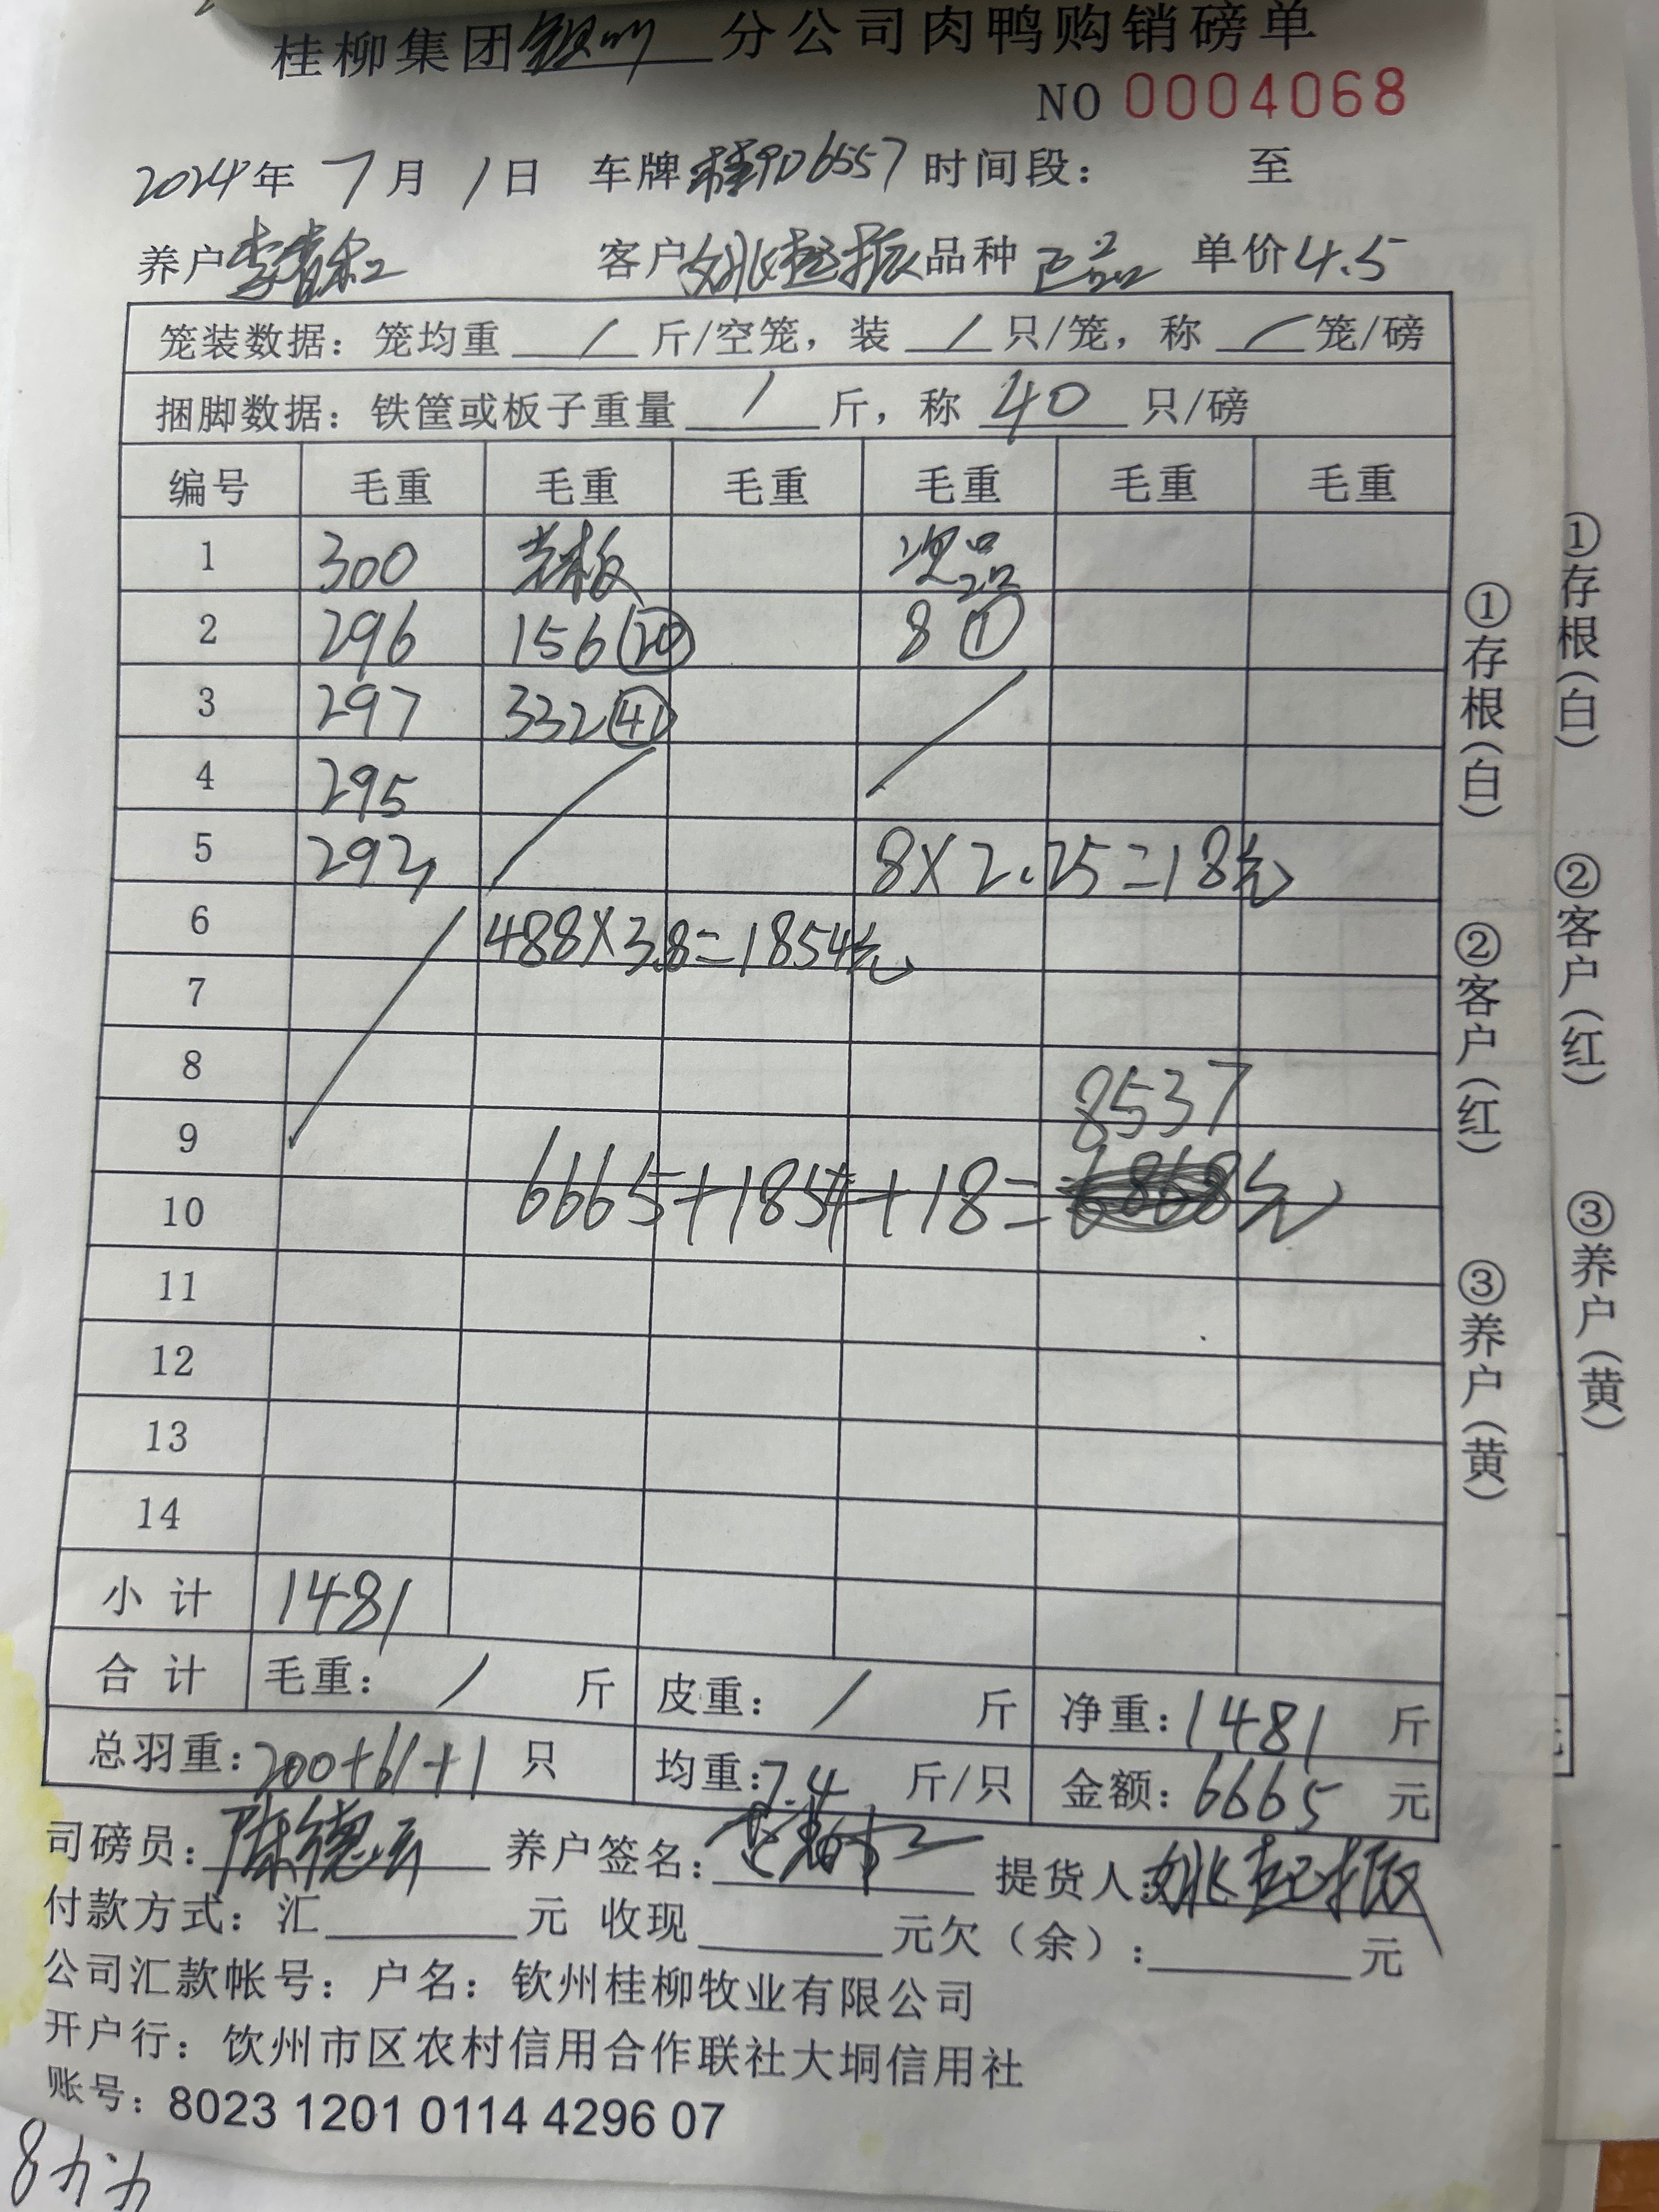 桂柳集团钦州分公司肉鸭购销磅单
NO 0004068
2024年 7月 1日 车牌桂PD6557 时间段: 至
养户 客户姚起振 品种 正品 单价4.5
笼装数据: 笼均重 / 斤/空笼, 装 / 只/笼, 称 / 笼/磅
捆脚数据: 铁筐或板子重量 / 斤, 称 40 只/磅
编号 毛重 毛重 毛重 毛重 毛重 毛重
1 300 次品
2 296 156 ⑳ 8 ①
3 297 332 ㊶
4 295
5 292 8×2.25=18元
6 488×3.8=1854元
7
8 8537
9
6665+1854+18= 元
10
11
12
13
14
小计 1481
合计 毛重: / 斤 皮重: / 斤 净重: 1481 斤
总羽重: 200+61+1 只 均重: 7.4 斤/只 金额: 6665 元
司磅员: 陈德云 养户签名: 提货人: 姚起振
付款方式: 汇 元 收现 元欠(余): 元
公司汇款帐号: 户名: 钦州桂柳牧业有限公司
开户行: 钦州市区农村信用合作联社大垌信用社
账号: 8023 1201 0114 4296 07
①存根(白) ②客户(红) ③养户(黄)
①存根(白) ②客户(红) ③养户(黄)